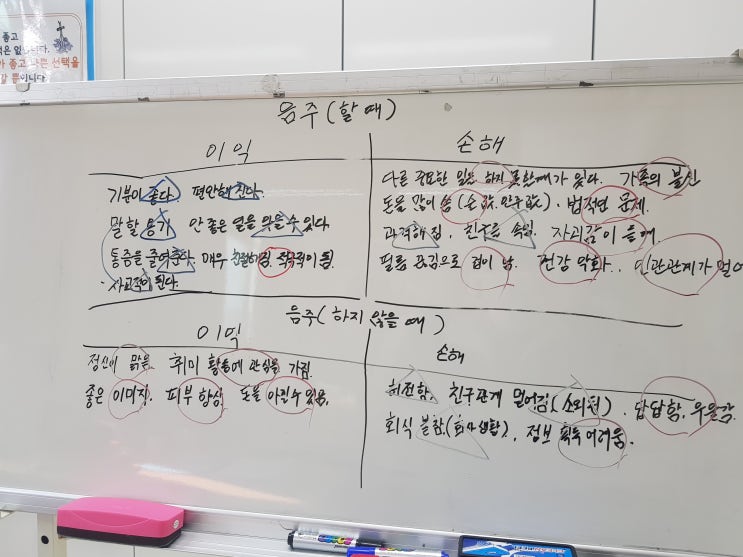 좋고
없습니다.
좋고 나쁜 선택을
뿐이니다
음주 (할 때)
이익
기분이 좋다. 편안해진다.
말할 용기 안 좋은 일을 잊을 수 있다
통증을 줄여준다. 매우 친절해짐. 적극적이 됨.
· 사교적이 된다.
손해
다른 중요한 일을 하지 못할때가 있다. 가족의 불신
돈을 많이 씀 (술값, 안주값) · 법적인 문제.
과격해짐, 친구를 속임. 자괴감이 들게.
필름 끊김으로 겁이 남. 건강 악화.. 인관관계가 멀어
음주 (하지 않을 때)
이익
정신이 맑음. 취미 활동에 관심을 가짐
좋은 이미지. 피부 향상. 돈을 아낄수 있음.
손해
허전함. 친구관계 멀어짐.(소외됨). 답답함. 우울감.
회식 불참.(회사생활). 정보 획득 어려움.